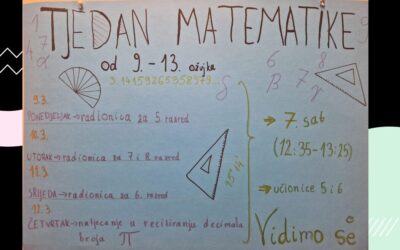 TJEDAN MATEMATIKE
od 9.-13. ožujka
3.14159265358979...
9.3.
PONEDJELJAK → radionica za 5. razred
10.3.
UTORAK → radionica za 7. i 8. razred
11.3.
SRIJEDA → radionica za 6. razred
12.3.
ČETVRTAK → natjecanje u recitiranju decimala
broja π
→ 7. sat
(12:35-13:25)
→ učionice 5 i 6
Vidimo se